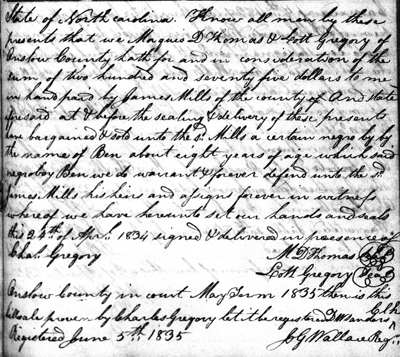 State of North carolina. Know all men by these
presents that we Marques D Thomas & Lott Gregory of
Onslow County hath for and in consideration of the
sum of two hundred and seventy five dollars to me
in hand paid by James Mills of the county of And state
foresaid at & before the sealing & delivery of these presents
have bargained & sold unto the sd. Mills a certain negro by by
the name of Ben about eight years of age which said
negro boy Ben we do warrant & forever defend unto the sd.
James Mills his heirs and assigns forever in witness
whereof we have hereunto set our hands and seals
this 24th of Aprl. 1834 signed & delivered in presence of
Chas. Gregory M. D Thomas Seal
Lott Gregory Seal
Onslow County in court May Term 1835 then is this
billsale proven by Charles Gregory let it be registered D W Sanders Clk
Registered June 5th. 1835 J G Wallace Regr.